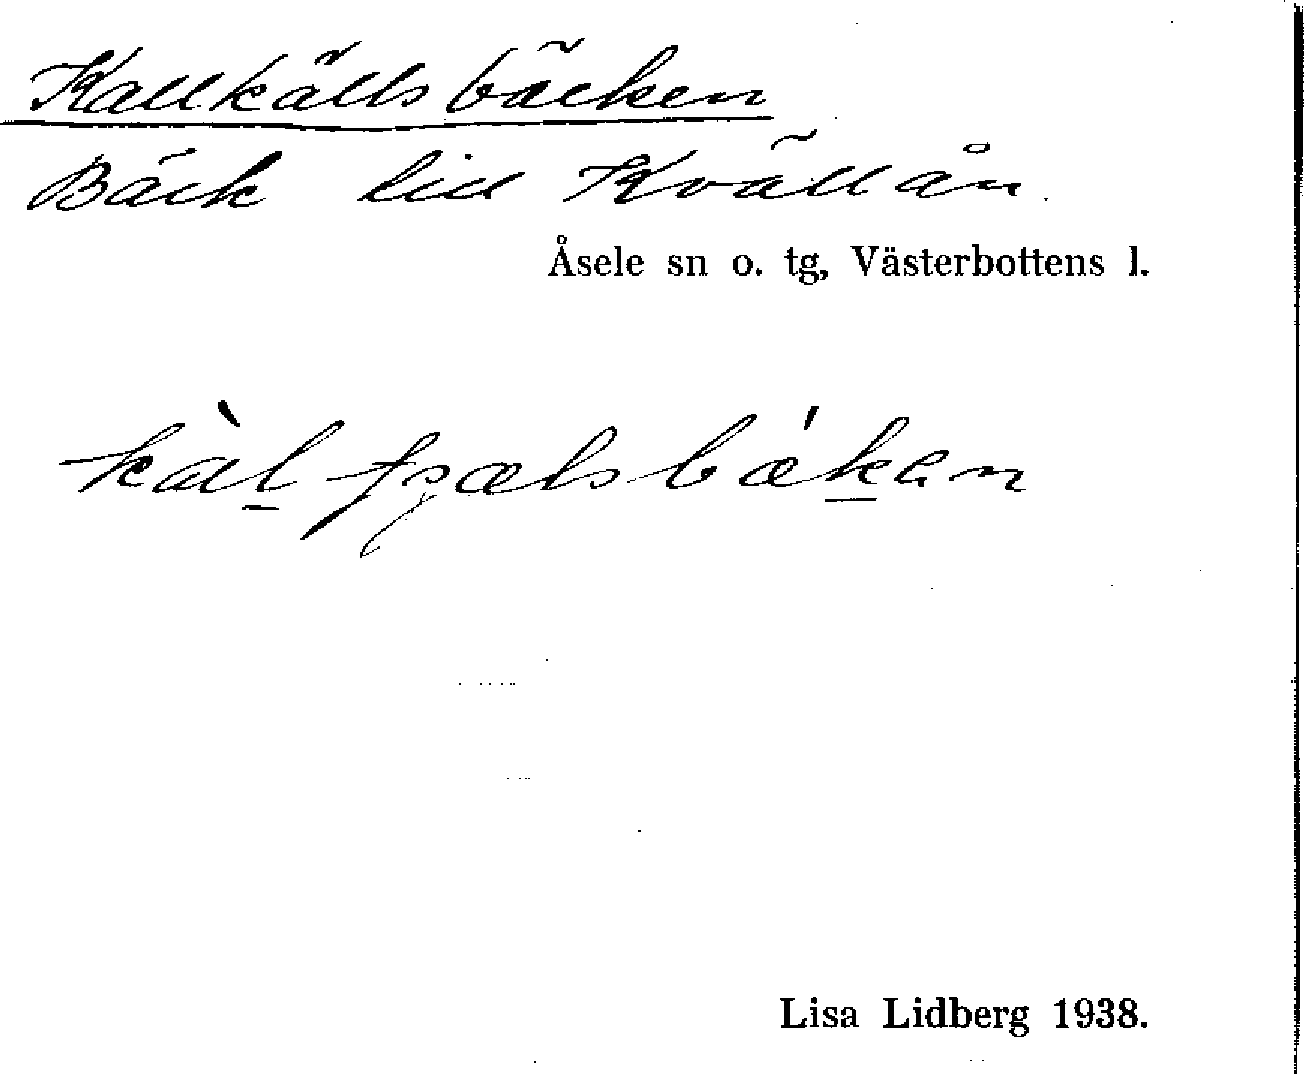 Kallkällsbäcken
Bäck till Kvällån.
Åsele sn o. tg, Västerbottens l.
Lisa Lidberg 1938.